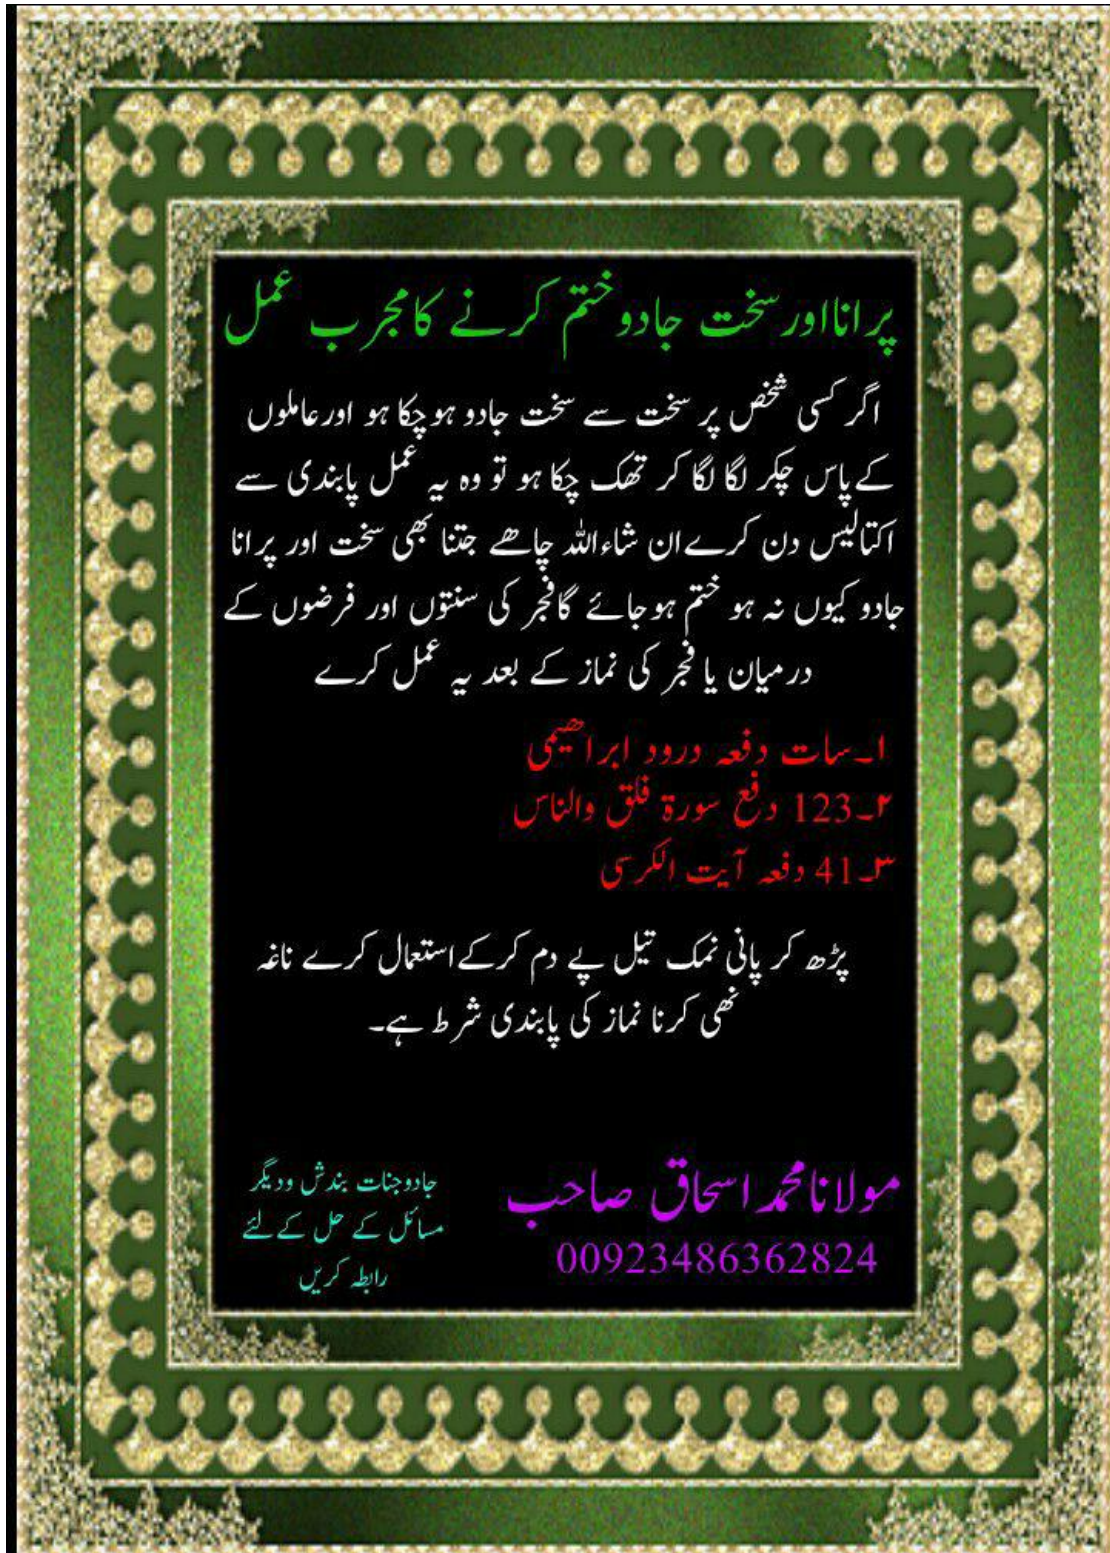 پرانااورسخت جادوختم کرنے کامجرب عمل
اگر کسی شخص پر سخت سے سخت جادو ہوچکا ہو اورعاملوں
کےپاس چکر لگا لگا کر تھک چکا ہو تو وہ یہ عمل پابندی سے
اکتالیس دن کرےان شاءاللہ چاھے جتنا بھی سخت اور پرانا
جادو کیوں نہ ہو ختم ہوجائے گافجر کی سنتوں اور فرضوں کے
درمیان یا فجر کی نماز کے بعد یہ عمل کرے
۱۔سات دفعہ درود ابراھیمی
۲۔123 دفع سورۃ فلق والناس
۳۔41 دفعہ آیت الکرسی
پڑھ کر پانی نمک تیل پے دم کرکےاستعمال کرے ناغہ
نھی کرنا نماز کی پابندی شرط ہے۔
مولانامحمداسحاق صاحب
00923486362824
جادوجنات بندش ودیگر
مسائل کے حل کےلئے
رابطہ کریں